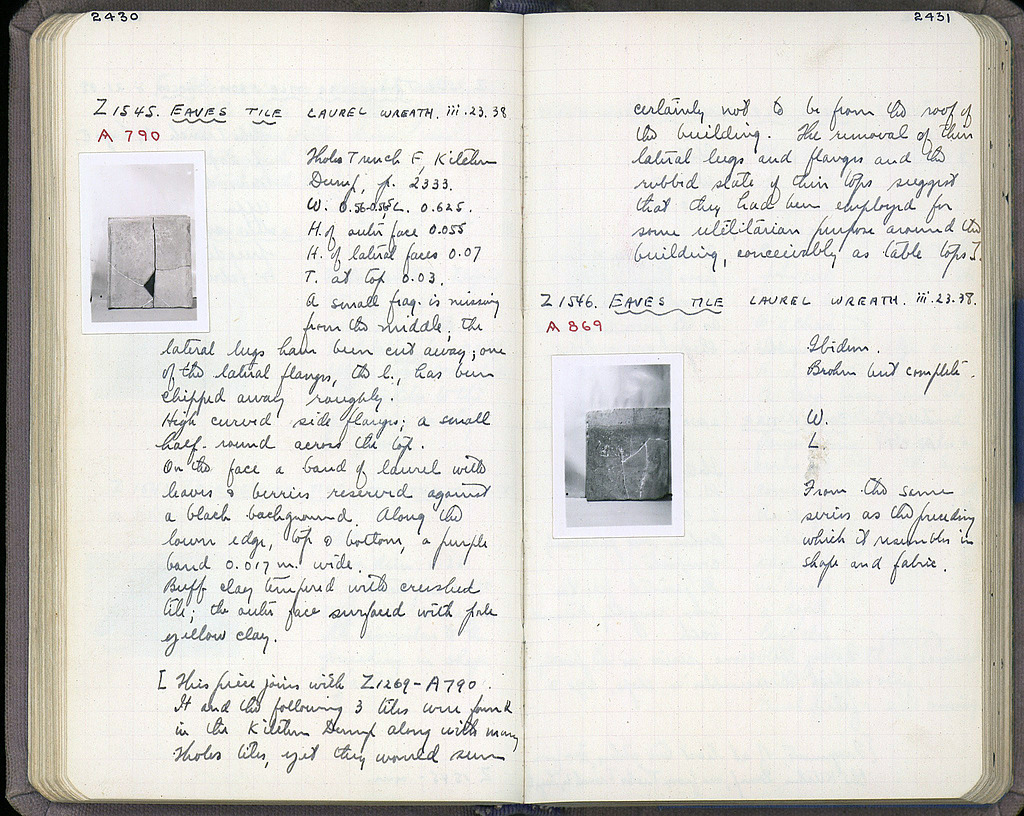 2430
Z 1545. EAVES TILE LAUREL WREATH. iii.23.38
A 790
Tholos Trench F, Kitchen
Dump, p. 2333.
W. 0.56-0.565 L. 0.625.
H. of outer face 0.055
H. of lateral faces 0.07
T. at top 0.03.
A small frag. is missing
from the middle; the
lateral lugs have been cut away; one
of the lateral flanges, the l., has been
chipped away roughly.
High curved side flanges; a small
half-round across the top.
On the face a band of laurel with
leaves & berries reserved against
a black background. Along the
lower edge, top & bottom, a purple
band 0.017 m. wide.
Buff clay tempered with crushed
tile; the outer face surfaced with pale
yellow clay.
[ This piece joins with Z1269-A790.
It and the following 3 tiles were found
in the Kitchen Dump along with many
Tholos tiles, yet they would seem
2431
certainly not to be from the roof of
the building. The removal of their
lateral lugs and flanges and the
rubbed state of their tops suggest
that they had been employed for
some utilitarian purpose around the
building, conceivably as table tops].
Z 1546. EAVES TILE LAUREL WREATH. iii.23.38.
A 869
Ibidem.
Broken but complete.
W.
L.
From the same
series as the preceding
which it resembles in
shape and fabric.